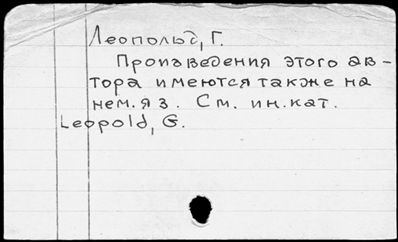 Леопольд, Г.
Произведения этого ав-
тора имеются также на
нем. яз. См. ин. кат.
Leopold, G.